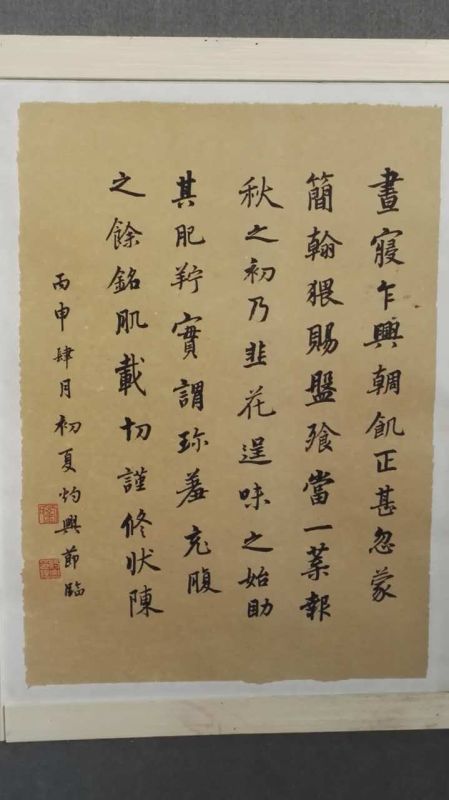 晝寢乍興輖飢正甚忽蒙
簡翰猥賜盤飱當一葉報
秋之初乃韭花逞味之始助
其肥羜實謂珍羞充腹
之餘銘肌載切謹修狀陳
丙申肆月初夏灼興節臨